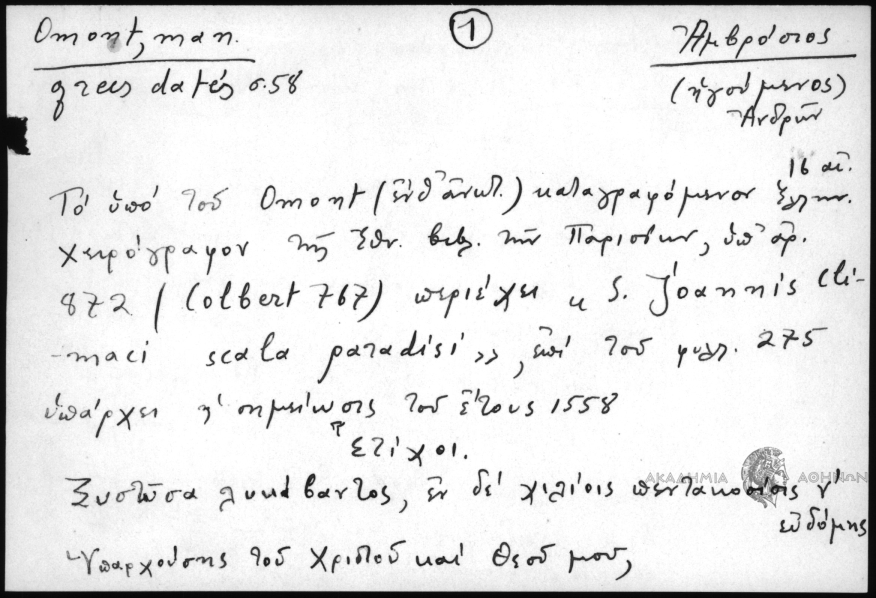 Omont, man. grecs datés σ. 58
①
Ἀμβρόσιος
(ἡγούμενος)
Ἀνδρῶν
16 αἰ.
Τό ὑπό τοῦ Omont (ἔνθ' ἀνωτ.) καταγραφόμενον ἑλλην.
χειρόγραφον τῆς Ἐθν. βιβλ. τῶν Παρισίων, ὑπ' ἀρ.
872 (Colbert 767) περιέχει « S. Joannis Cli-
-maci scala paradisi », ἐπί τοῦ φυλλ. 275
ὑπάρχει ἡ σημείωσις τοῦ ἔτους 1558
Στίχοι.
Ξυστῶσα λυκάβαντος, ἐν δέ χιλίοις πεντακοσίοις ν'
εὐδόμης
Ὑπαρχούσης τοῦ Χριστοῦ καί Θεοῦ μου,
ΑΚΑΔΗΜΙΑ ΑΘΗΝΩΝ